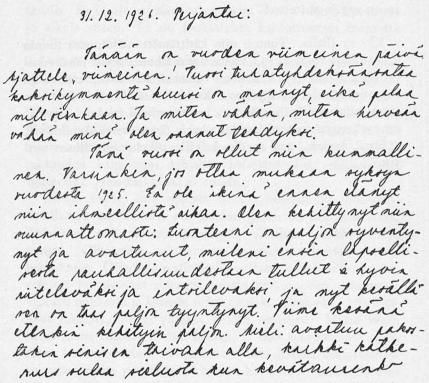 31.12.1926. Perjantai:
Tänään on vuoden viimeinen päivä
ajattele, viimeinen! Vuosi tuhatyhdeksänsataa
kaksikymmentä kuusi on mennyt, eikä palaa
milloinkaan. Ja miten vähän, miten hirveän
vähän minä olen saanut tehdyksi.
Tänä vuosi on ollut niin kummalli-
nen. Varsinkin, jos ottaa mukaan syksyn
vuodesta 1925. En ole ikinä ennen elänyt
niin ihmeellistä aikaa. Olen kehittynyt niin
suunnattomasti: luonteeni on paljon syventy-
nyt ja avartunut, mieleni ensin lapselli-
sesta rauhallisuudestaan tullut hyvin
riiteleväksi ja intoilevaksi, ja nyt kesällä
sen on taas paljon tyyntynyt. Viime kesänä
etenkin kehityin paljon. Mieli avartuu pakos-
takin sinisen taivaan alla, kaikki katke-
ruus sulaa sielusta kun kevätaurinko